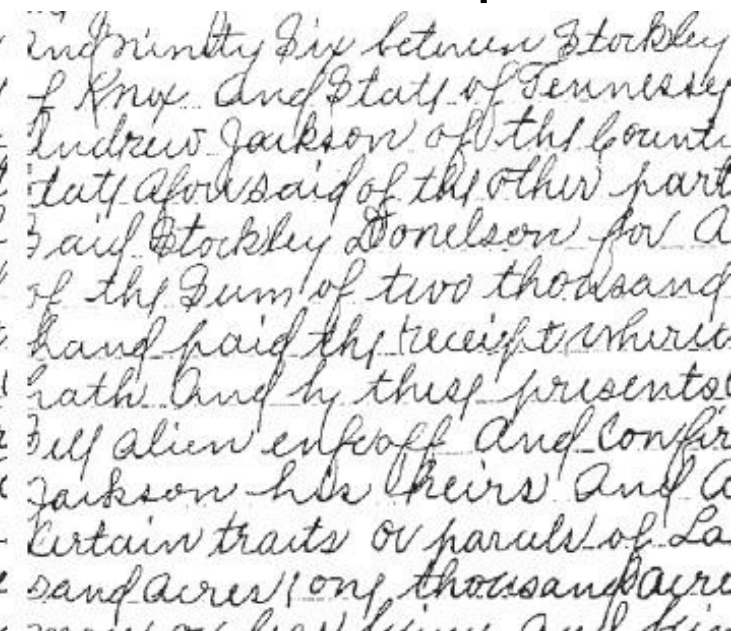 and ninity Six between Stockley
of Knox and State of Tennessee
Andrew Jackson of the Count
State aforesaid of the other part
Said Stockley Donelson for a
of the Sum of two thousand
hand paid the receipt where
hath and by these presents
Sell alien enfeoff and Confir
Jackson his heirs and a
Certain tracts or parcels of La
sand acres one thousand acre
more or less lying and bein